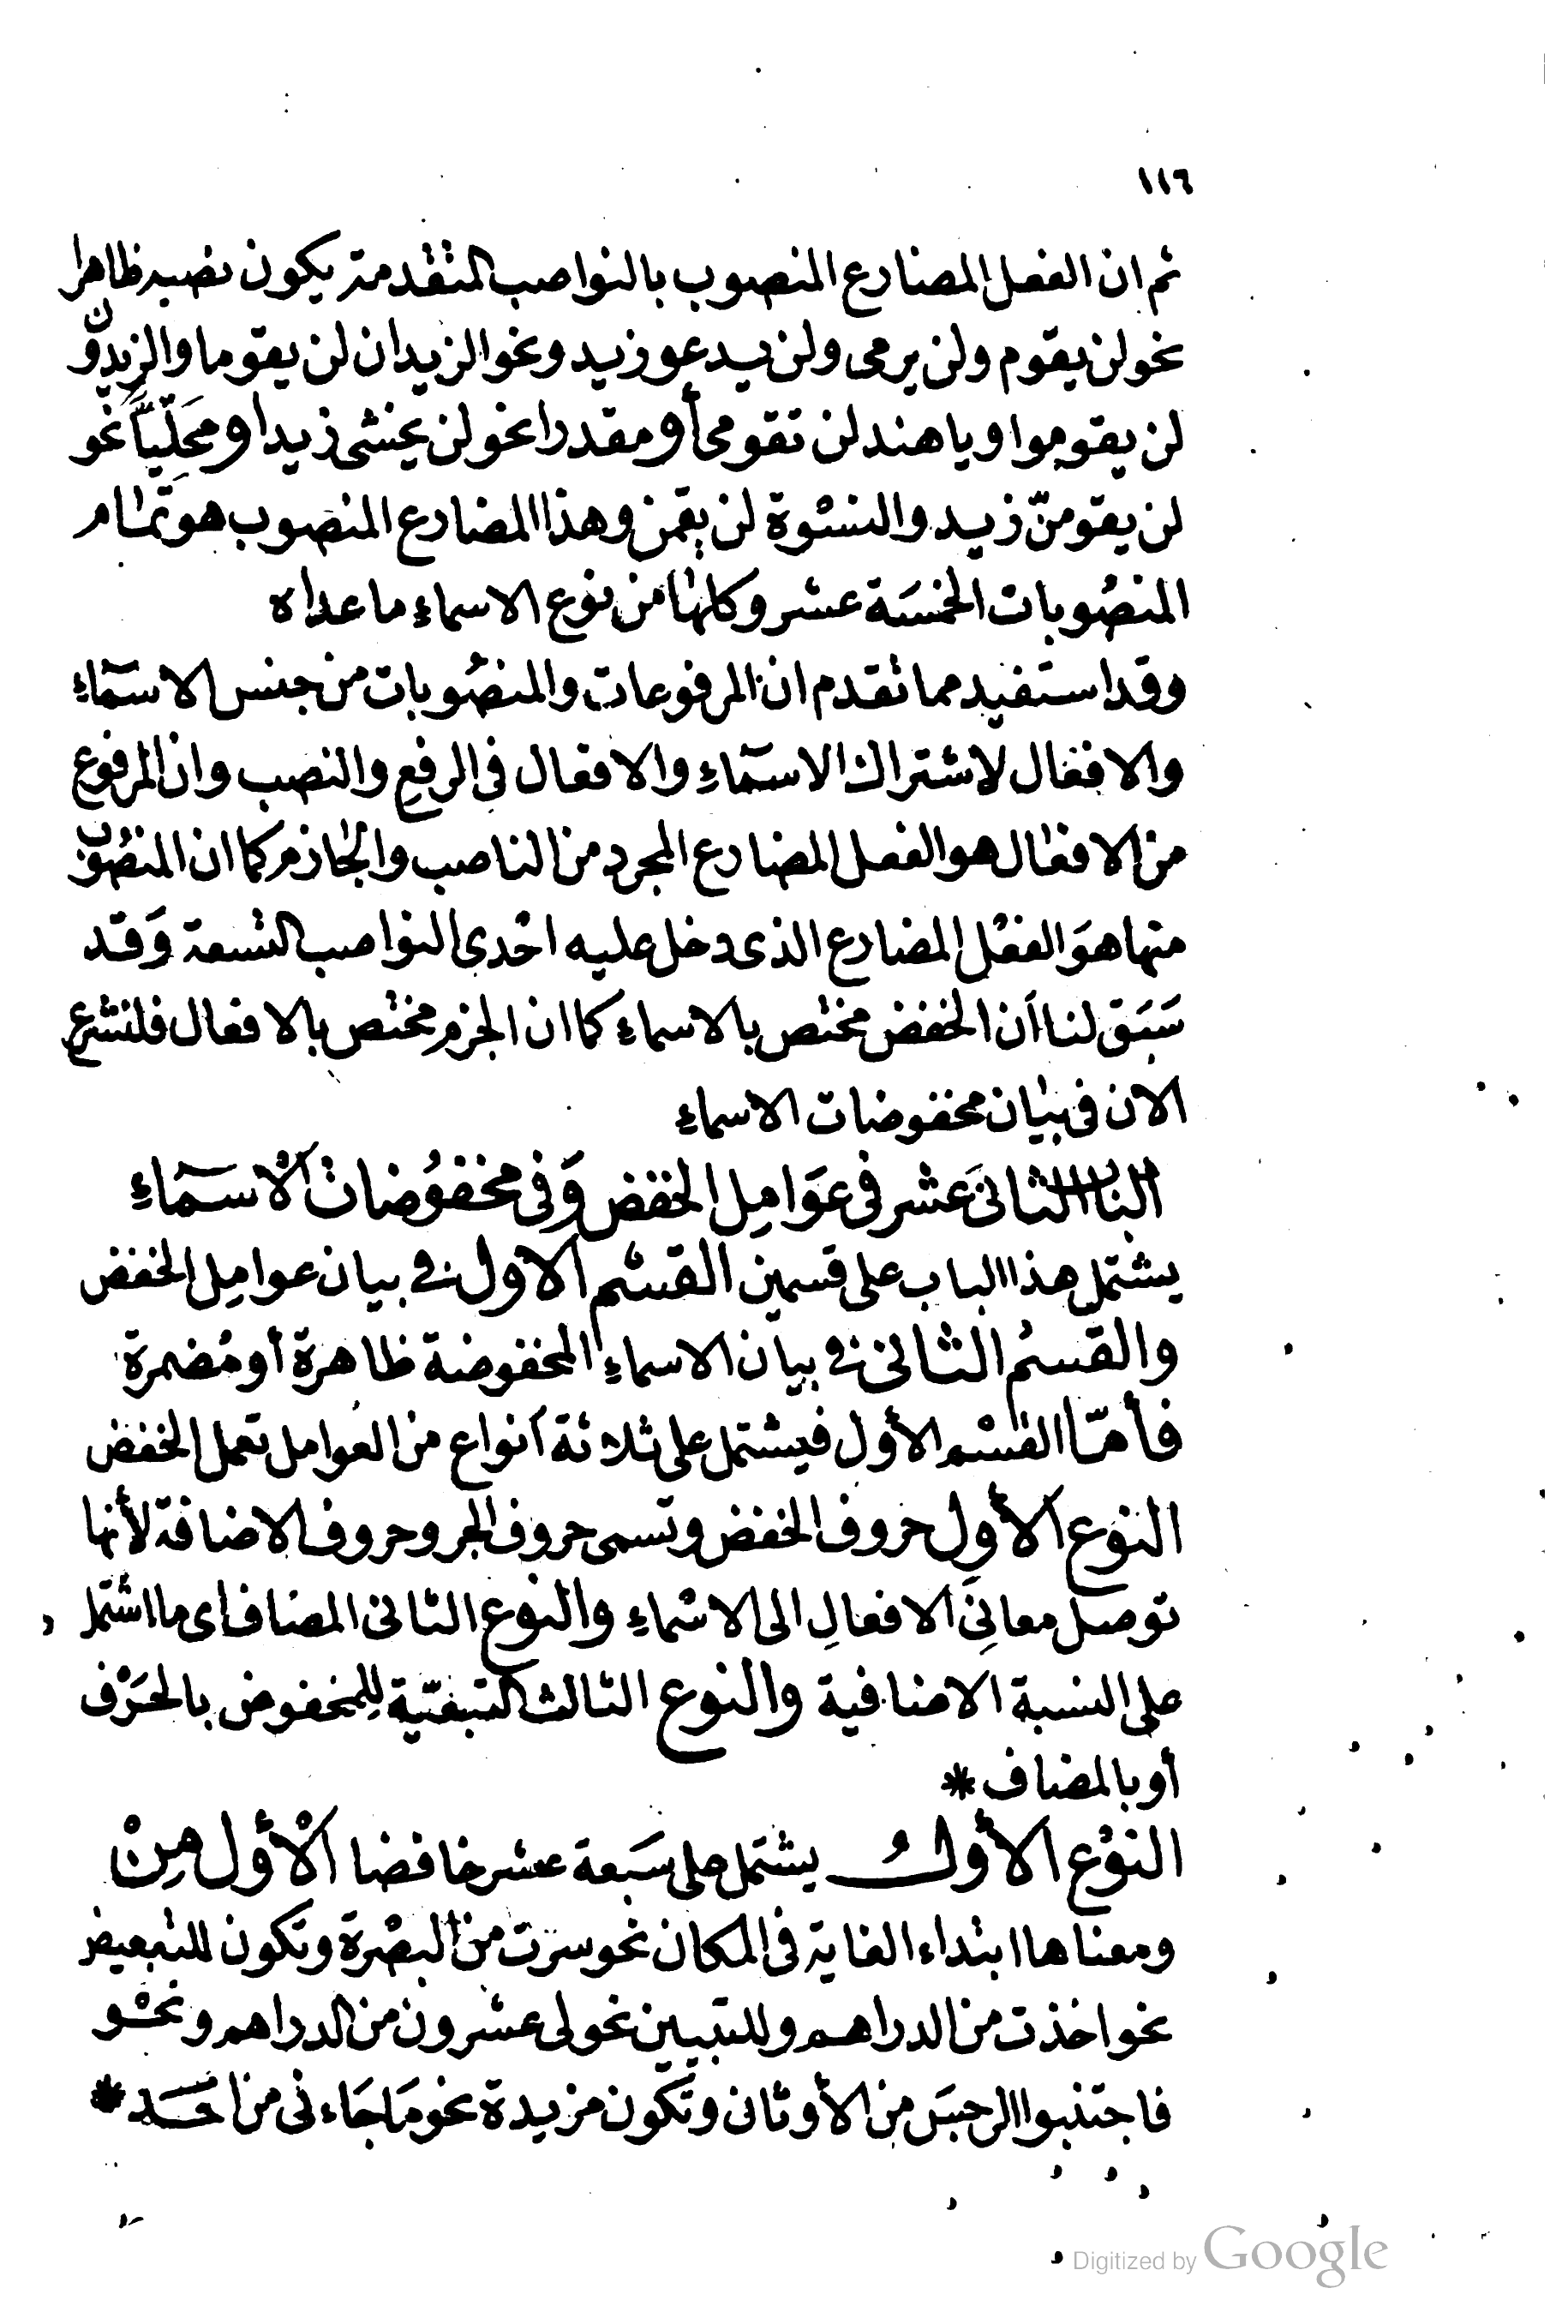 ١١٦
ثم ان الفعل المضارع المنصوب بالنواصب المتقدمة يكون نصبه ظاهرا
نحو لن يقوم ولن يرمى ولن يدعو زيد ونحو الزيدان لن يقوما والزيدون
لن يقوموا ويا هند لن تقومى أو مقدرا نحو لن يخشى زيد او محلّيّاً نحو
لن يقومنّ زيد والنسوة لن يقمن وهذا المضارع المنصوب هو تمام
المنصُوبات الخمسَة عشر وكلها من نوع الاسماءِ ما عداه
وقد استفيد مما تقدم ان المرفوعات والمنصُوبات من جنس الاسمآءِ
والافعال لاشتراك الاسمآءِ والافعال فى الرفعِ والنصب وان المرفوع
من الافعال هو الفعل المضارع المجرد من الناصب والجازم كما ان المنصُوب
منها هوَ الفعْل المضارع الذى دخل عليه احْدى النواصب التسعة وَقد
سَبَق لنا أن الخفض مختص بالاسماءِ كما ان الجزم مختص بالافعال فلنشرع
الان فى بيان مخفوضات الاسماءِ
الباب الثانى عَشر فى عَوَامِل الخفض وَفى مخفوُضات الْاسمآءِ
يشتمل هذا الباب على قسمين القسْم الاول فى بيان عوامِل الخفض
والقسمُ الثانى فى بيان الاسماءِ المخفوضة ظاهرة أو مُضمرة
فأمّا القسْم الأول فيشتمل على ثلاثة أنواع من العوامل تعمل الخفض
النوع الأول حروف الخفض وتسمى حروف الجر وحروف الاضافة لأنها
توصل معانِىَ الافعالِ الى الاسْماءِ والنوع الثانى المضاف اى ما اشتمل
على النسبة الاضافية والنوع الثالث التبعيّة لِلمخفوض بالحَرْف
أو بالمضاف *
النوْع الأولُ يشتمل على سَبعة عشر خافضا الْأول مِنْ
ومعناها ابتداء الغاية فى المكان نحو سرت من البصْرة وتكون للتبعيض
نحو اخذت من الدراهم وللتبيين نحو لى عشرون من الدراهم ونحْو
فاجتنبوا الرجسَ من الأوثان وتكون مزيدة نحو مَا جَاءنى من احَد *
Digitized by Google